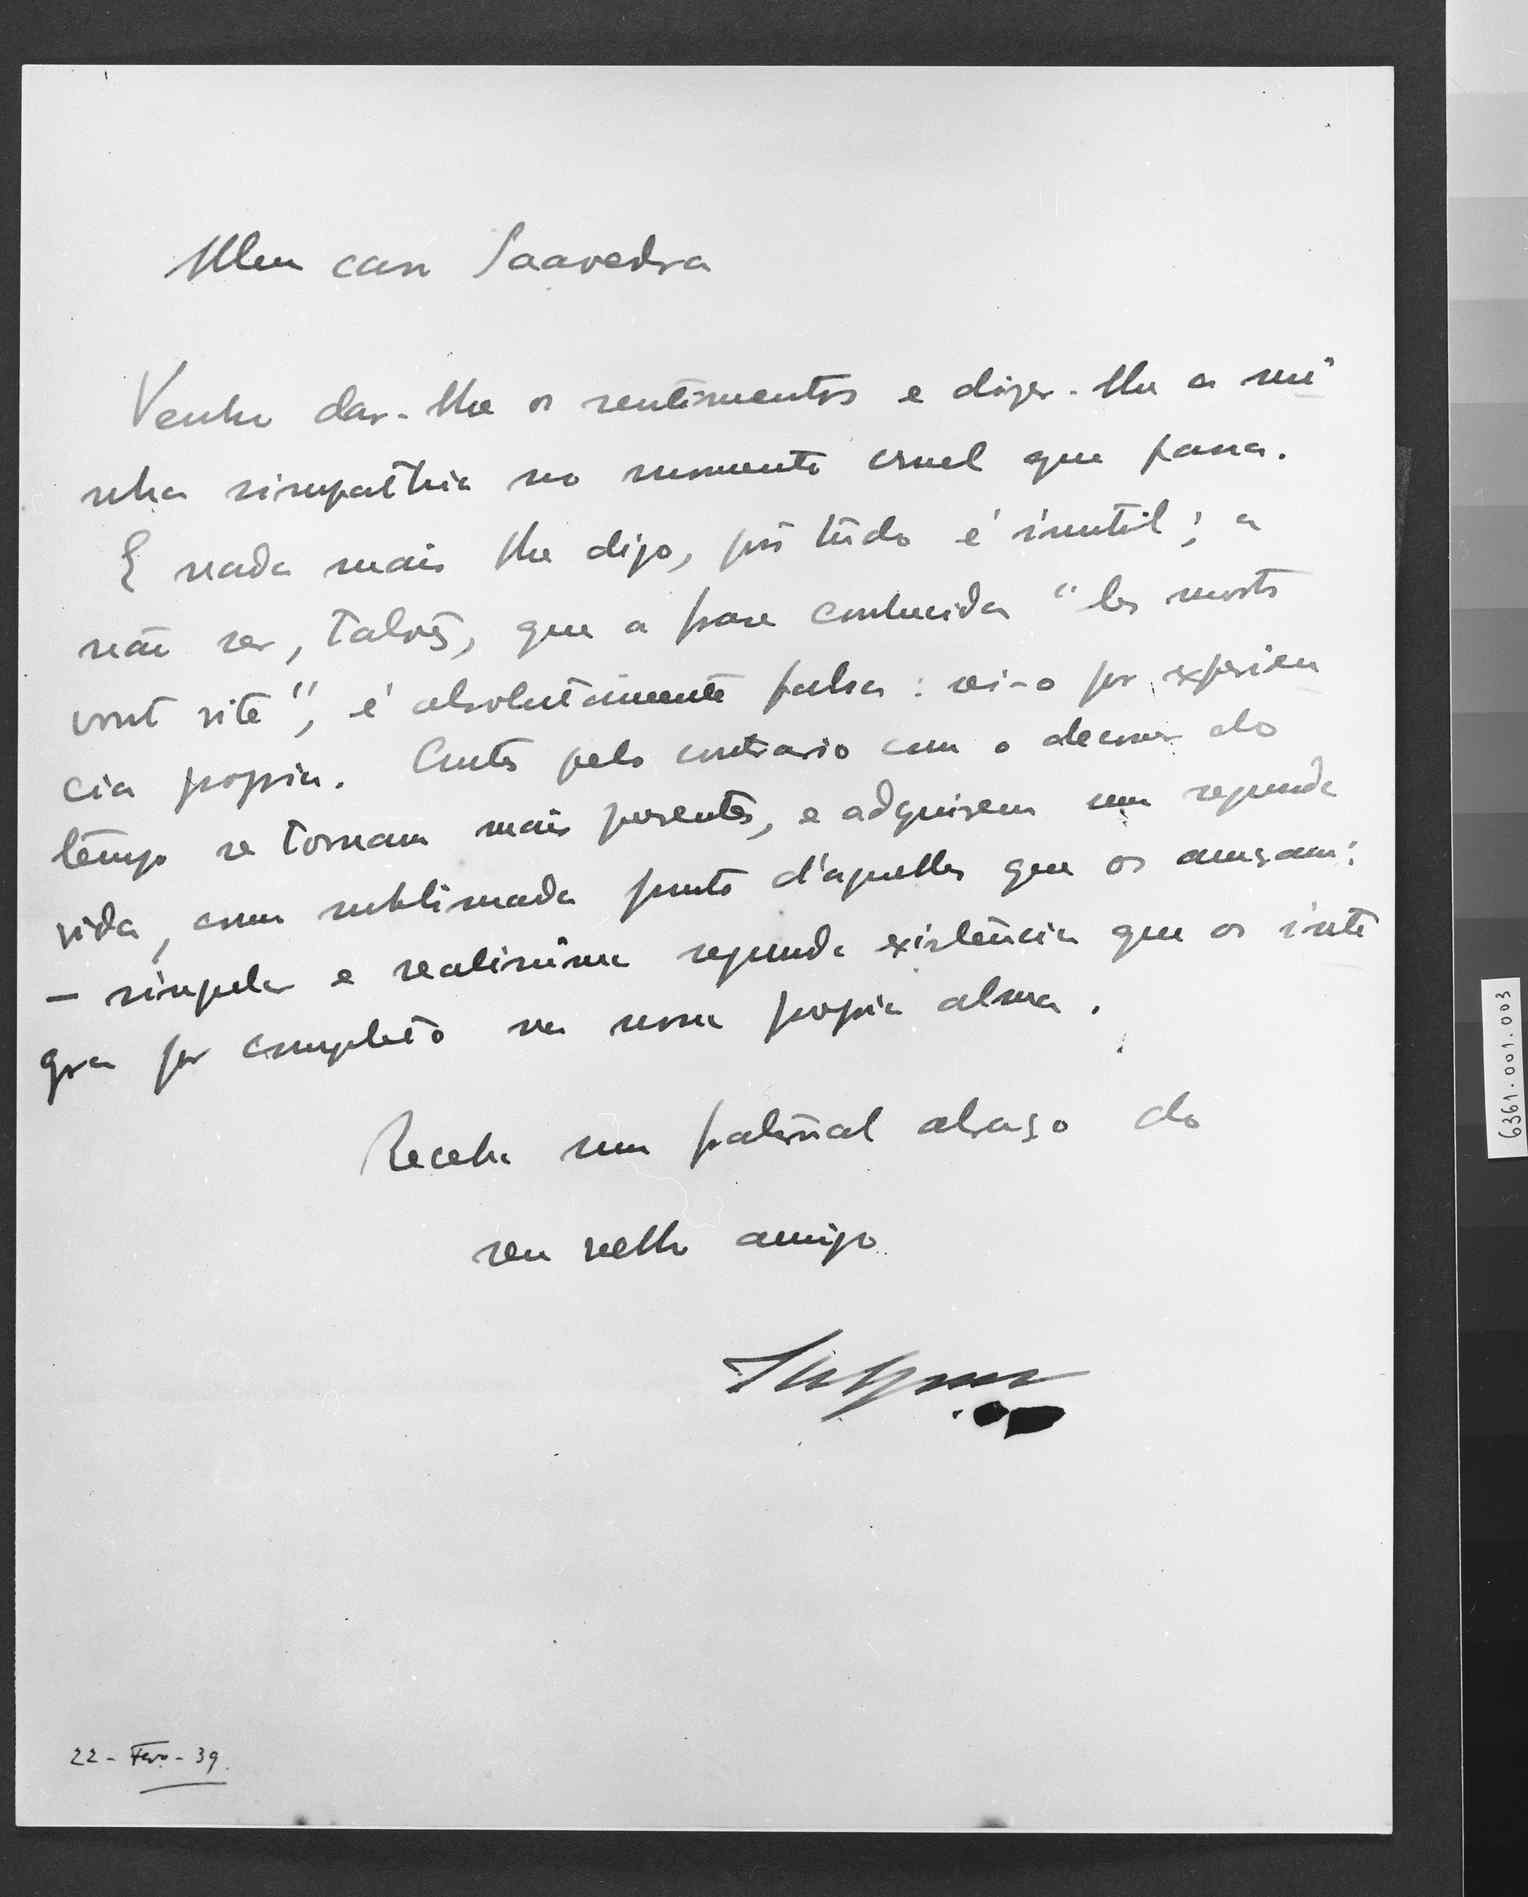 Meu caro Saavedra
Venho dar-lhe os sentimentos e dizer-lhe a mi
nha simpathia no momento cruel que passa.
E nada mais lhe digo, pois tudo é inutil; a
não ser, talvês, que a frase conhecida "les morts
vont vite", é absolutamente falsa: vi-o por experien
cia propria. Antes pelo contrario com o decorrer do
tempo se tornam mais presentes, e adquirem uma segunda
vida, como sublimada junto d'aquelles que os amaram:
— singular e realissima segunda existência que os inte
gra por completo na nossa propria alma.
Receba um paternal abraço do
seu velho amigo
22-Fevo.-39.
6361.001.003